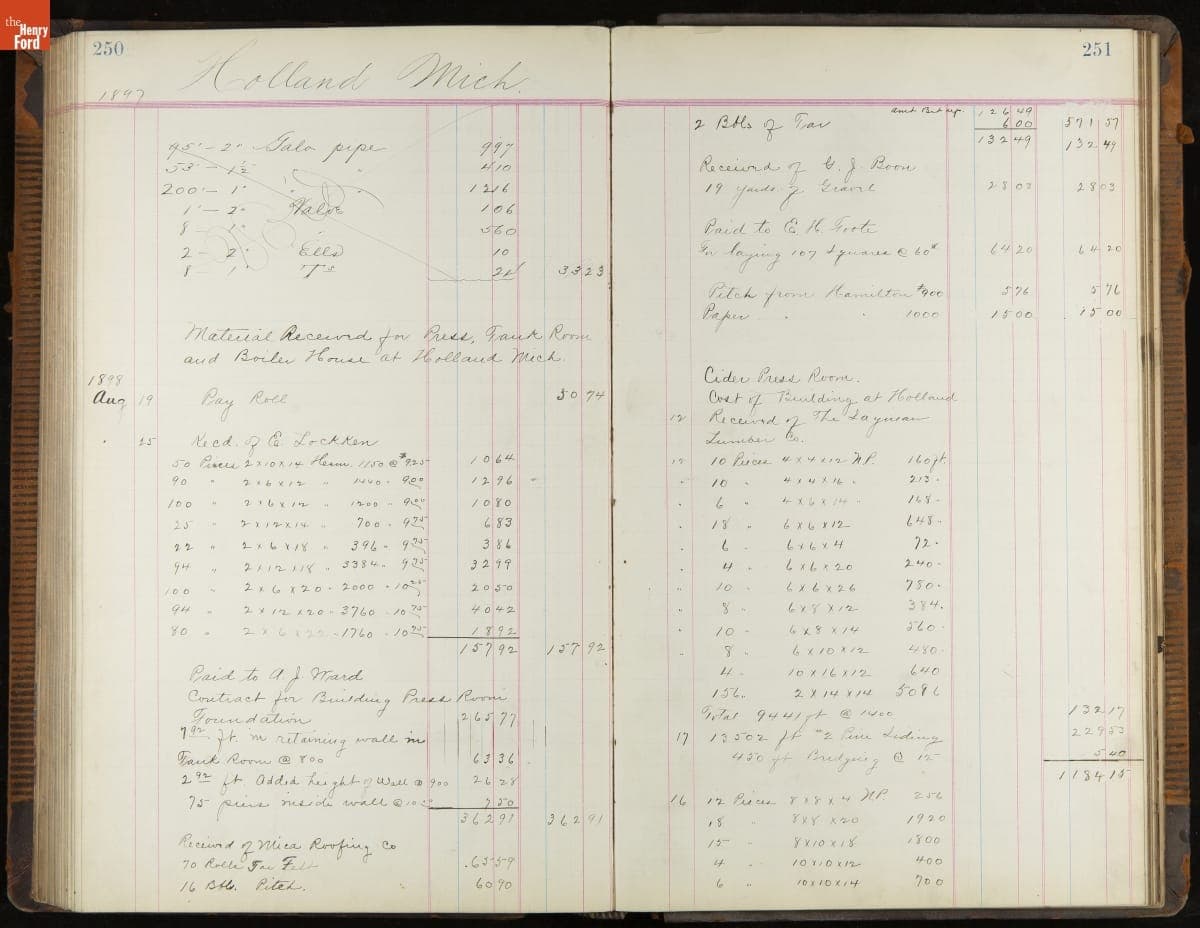 the
Henry
Ford
250
Holland Mich.
1897
45' - 2" Galv pipe 9 97
53' - 1½ " " 4 10
200' - 1" " " 12 16
1' - 2" Valve 1 06
8 - 1" 5 60
2 - 2" Ells 10
8 - 1" T's 24 33 23
Material Received for Press, Tank Room
and Boiler House at Holland Mich.
1898
Aug 19 Pay Roll 50 74
" 25 Recd. of E. Lockken
50 Pieces 2x10x14 Hem. 1150 @ $9.25 10 64
90 " 2x6x12 " 1440 - 9.00 12 96
100 " 2x6x12 " 1200 - 9.00 10 80
25 " 2x12x14 " 700 - 9.75 6 83
22 " 2x6x18 " 396 - 9.75 3 86
94 " 2x12x18 " 3384 - 9.75 32 99
100 " 2x6x20 - 2000 - 10.25 20 50
94 " 2x12x20 - 3760 - 10.75 40 42
80 " 2x6x22 - 1760 - 10.75 18 92
157 92 157 92
Paid to A. J. Ward
Contract for Building Press Room
Foundation 265 77
7.92 ft. in retaining wall in
Tank Room @ 800 63 36
2.92 ft Added height of Wall @ 900 26 28
75 piers inside wall @ 10 7 50
362 91 362 91
Received of Mica Roofing Co
70 Rolls Tar Felt 65 59
16 Bbl. Pitch. 60 90
251
Amt Brt up. 126 49
2 Bbls of Tar 6 00 571 57
132 49 132 49
Received of G. J. Boon
19 yards of Gravel 28 03 28 03
Paid to E. H. Foote
For laying 107 Squares @ 60¢ 64 20 64 20
Pitch from Hamilton #900 5 76 5 76
Paper " " 1000 15 00 15 00
Cider Press Room.
Cost of Building at Holland
12 Received of The Layman
Lumber Co.
12 10 Pieces 4x4x12 N.P. 160 ft.
" 10 " 4x4x16 " 213 "
" 6 " 4x6x14 " 168 "
" 18 " 6x6x12 648 "
" 6 " 6x6x4 72 "
" 4 " 6x6x20 240 "
" 10 " 6x6x26 780 "
" 8 " 6x8x12 384 "
" 10 " 6x8x14 560 "
" 8 " 6x10x12 480 "
4 " 10x16x12 640
156 " 2x14x14 5096
Total 9441 ft @ 1400 132 17
17 13502 ft #2 Pine Siding 229 53
450 ft Bridging @ 12 5 40
1184 15
16 12 Pieces 8x8x4 N.P. 256
18 " 8x8x20 1920
15 " 8x10x18 1800
4 " 10x10x12 400
6 " 10x10x14 700